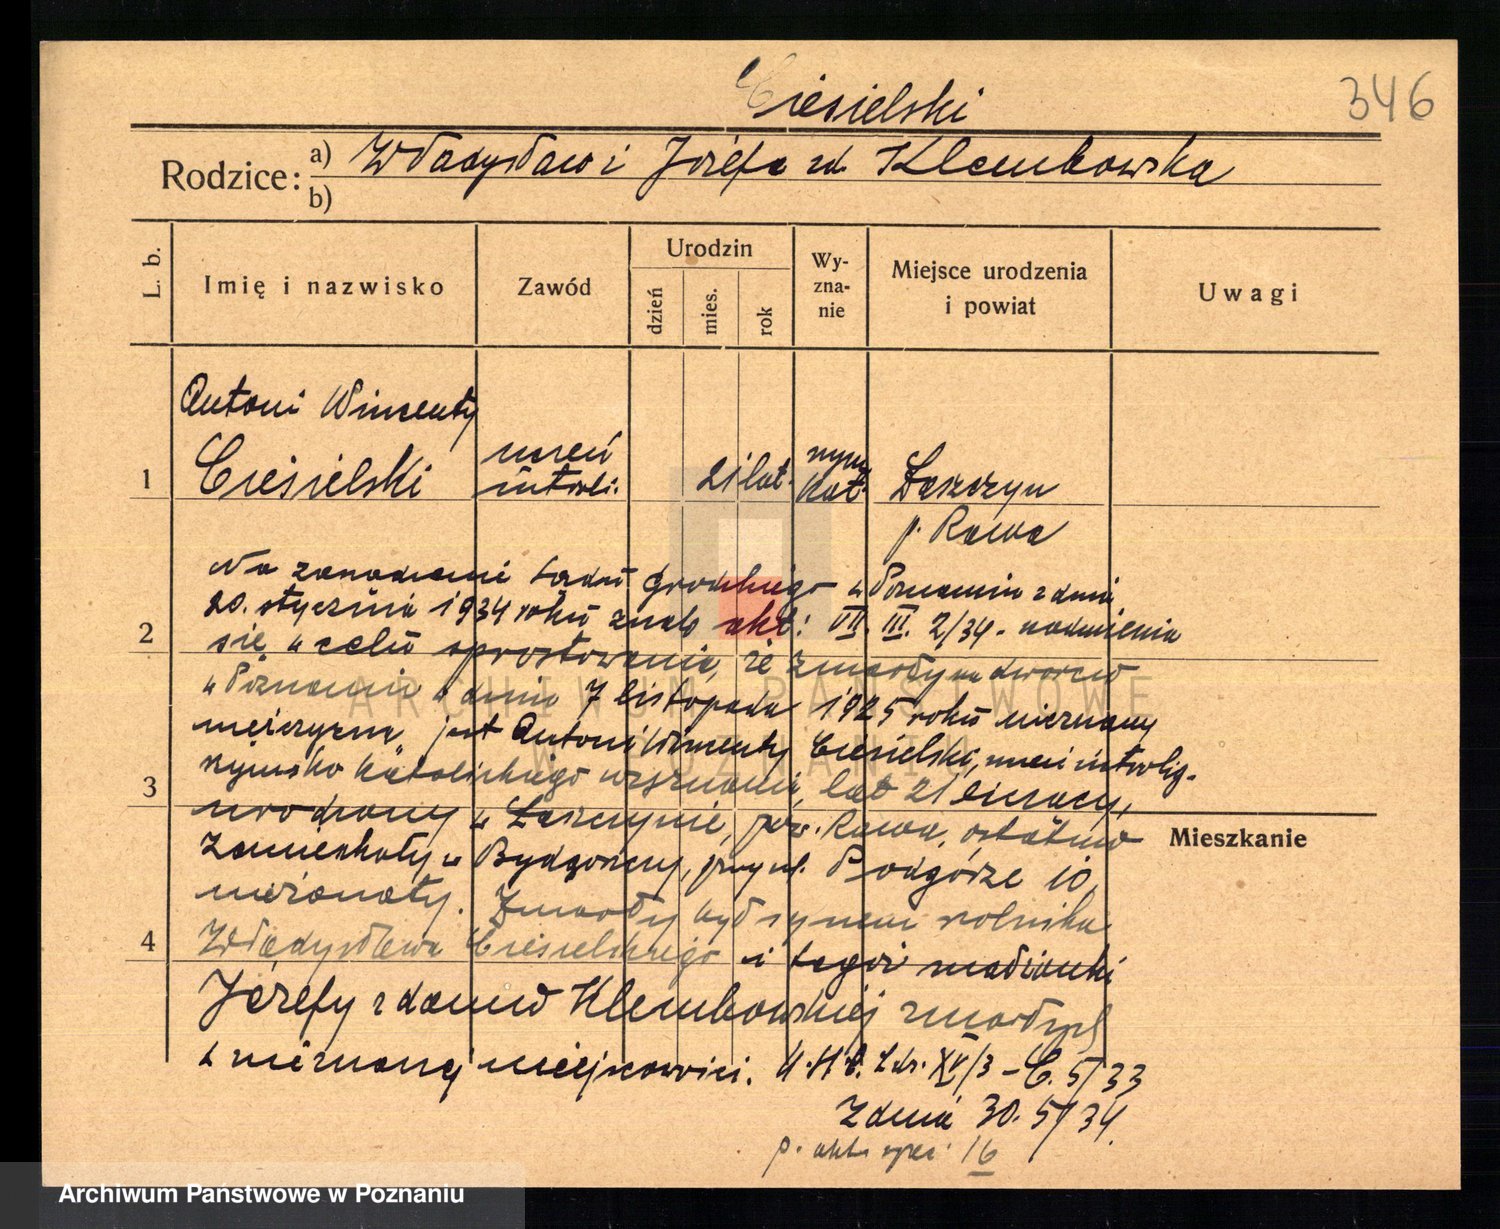 Ciesielski
346
Rodzice:
a) Władysław i Józefa zd. Klembowska
b)
L. b.
Imię i nazwisko
Zawód
Urodzin
dzień
mies.
rok
Wy-
zna-
nie
Miejsce urodzenia
i powiat
Uwagi
Antoni Wincenty
1 Ciesielski
uczeń
introli.
21 lat.
rzym
kat.
Łaszczyn
p. Rawa
Na zarządzenie Sądu Grodzkiego w Poznaniu z dnia
20. stycznia 1934 roku znak akt: VII. III. 2/34. nadmienia
2
się w celu sprostowania, że zmarły na dworcu
w Poznaniu w dniu 7 listopada 1925 roku nieznany
mężczyzna, jest Antoni Wincenty Ciesielski, uczeń introlig.
rzymsko katolickiego wyznania, lat 21 liczący,
3
urodzony w Łaszczynie, pow. Rawa, ostatnio
zamieszkały w Bydgoszczy, przy ul. Podgórze 10,
nieżonaty. Zmarły był synem rolnika
4
Władysława Ciesielskiego i tegoż małżonki
Józefy z domu Klembowskiej zmarłych
w nieznanej miejscowości. XV/3 - C. 5/33
z dnia 30. 5/34.
p. akt. 16
Mieszkanie
ARCHIWUM PAŃSTWOWE
W POZNANIU
Archiwum Państwowe w Poznaniu